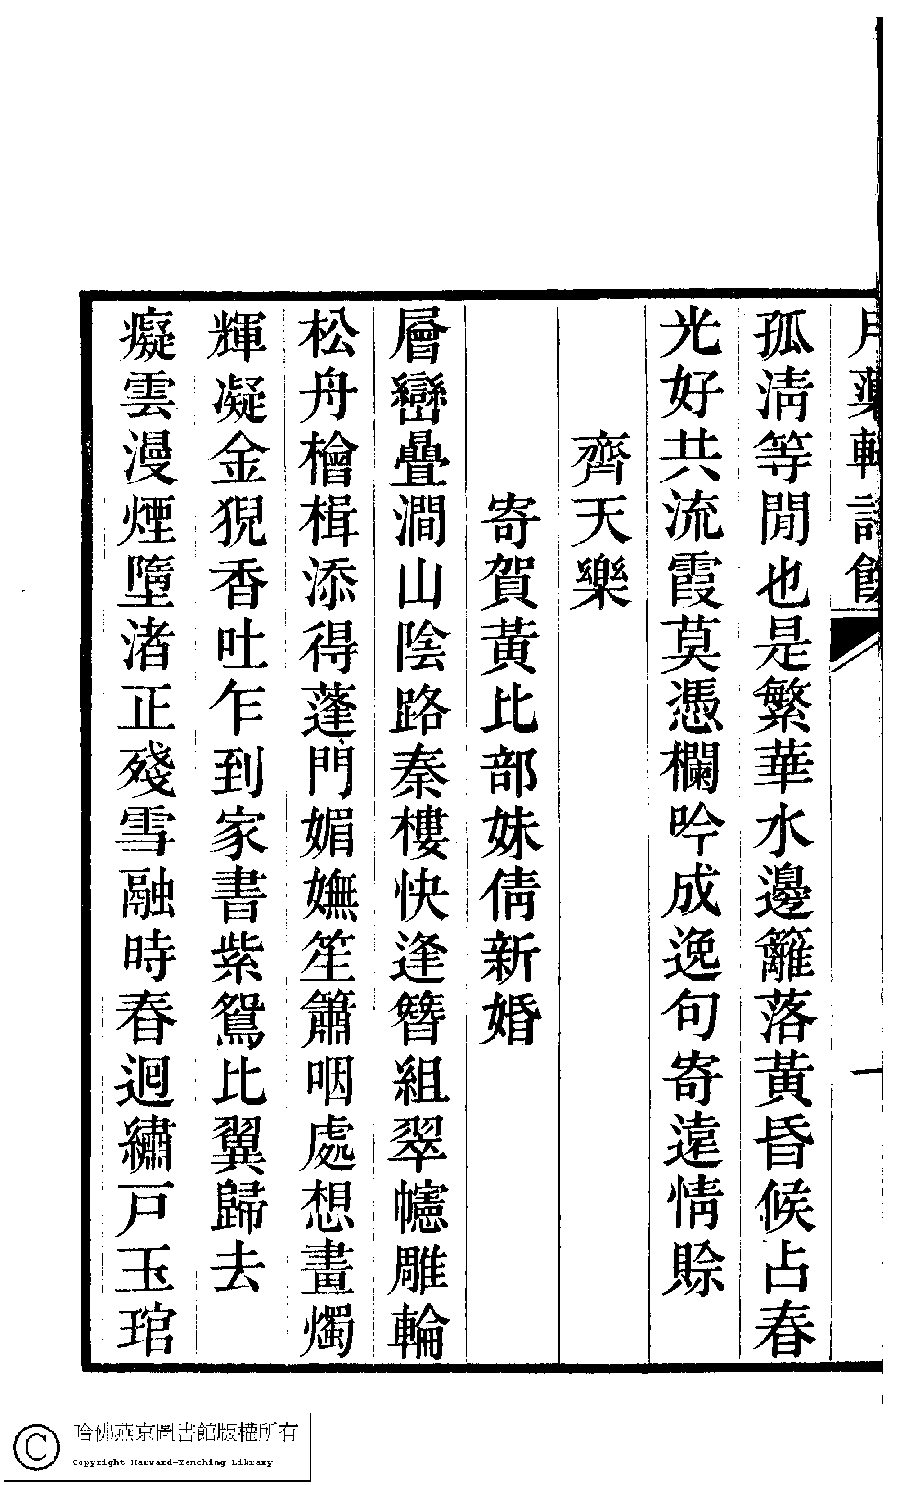 孤清等閒也是繁華水邊籬落黃昏候占春
光好共流霞莫憑欄吟成逸句寄遠情賒
齊天樂
寄賀黃比部妹倩新婚
層巒疊澗山陰路秦樓快逢簪組翠幰雕輪
松舟檜楫添得蓬門媚嫵笙簫咽處想畫燭
輝凝金猊香吐乍到家書紫鴛比翼歸去
癡雲漫煙墮渚正殘雪融時春迴繡戸玉琯
哈佛燕京圖書館版權所有
Copyright Harvard-Yenching Library